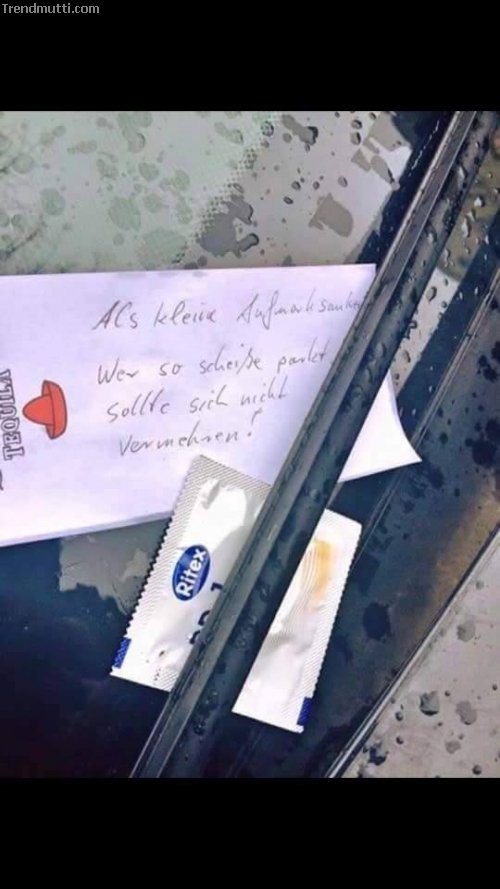 Trendmutti.com
Als kleine Aufmerksamkeit
Wer so scheiße parkt
sollte sich nicht
vermehren!
TEQUILA
Ritex